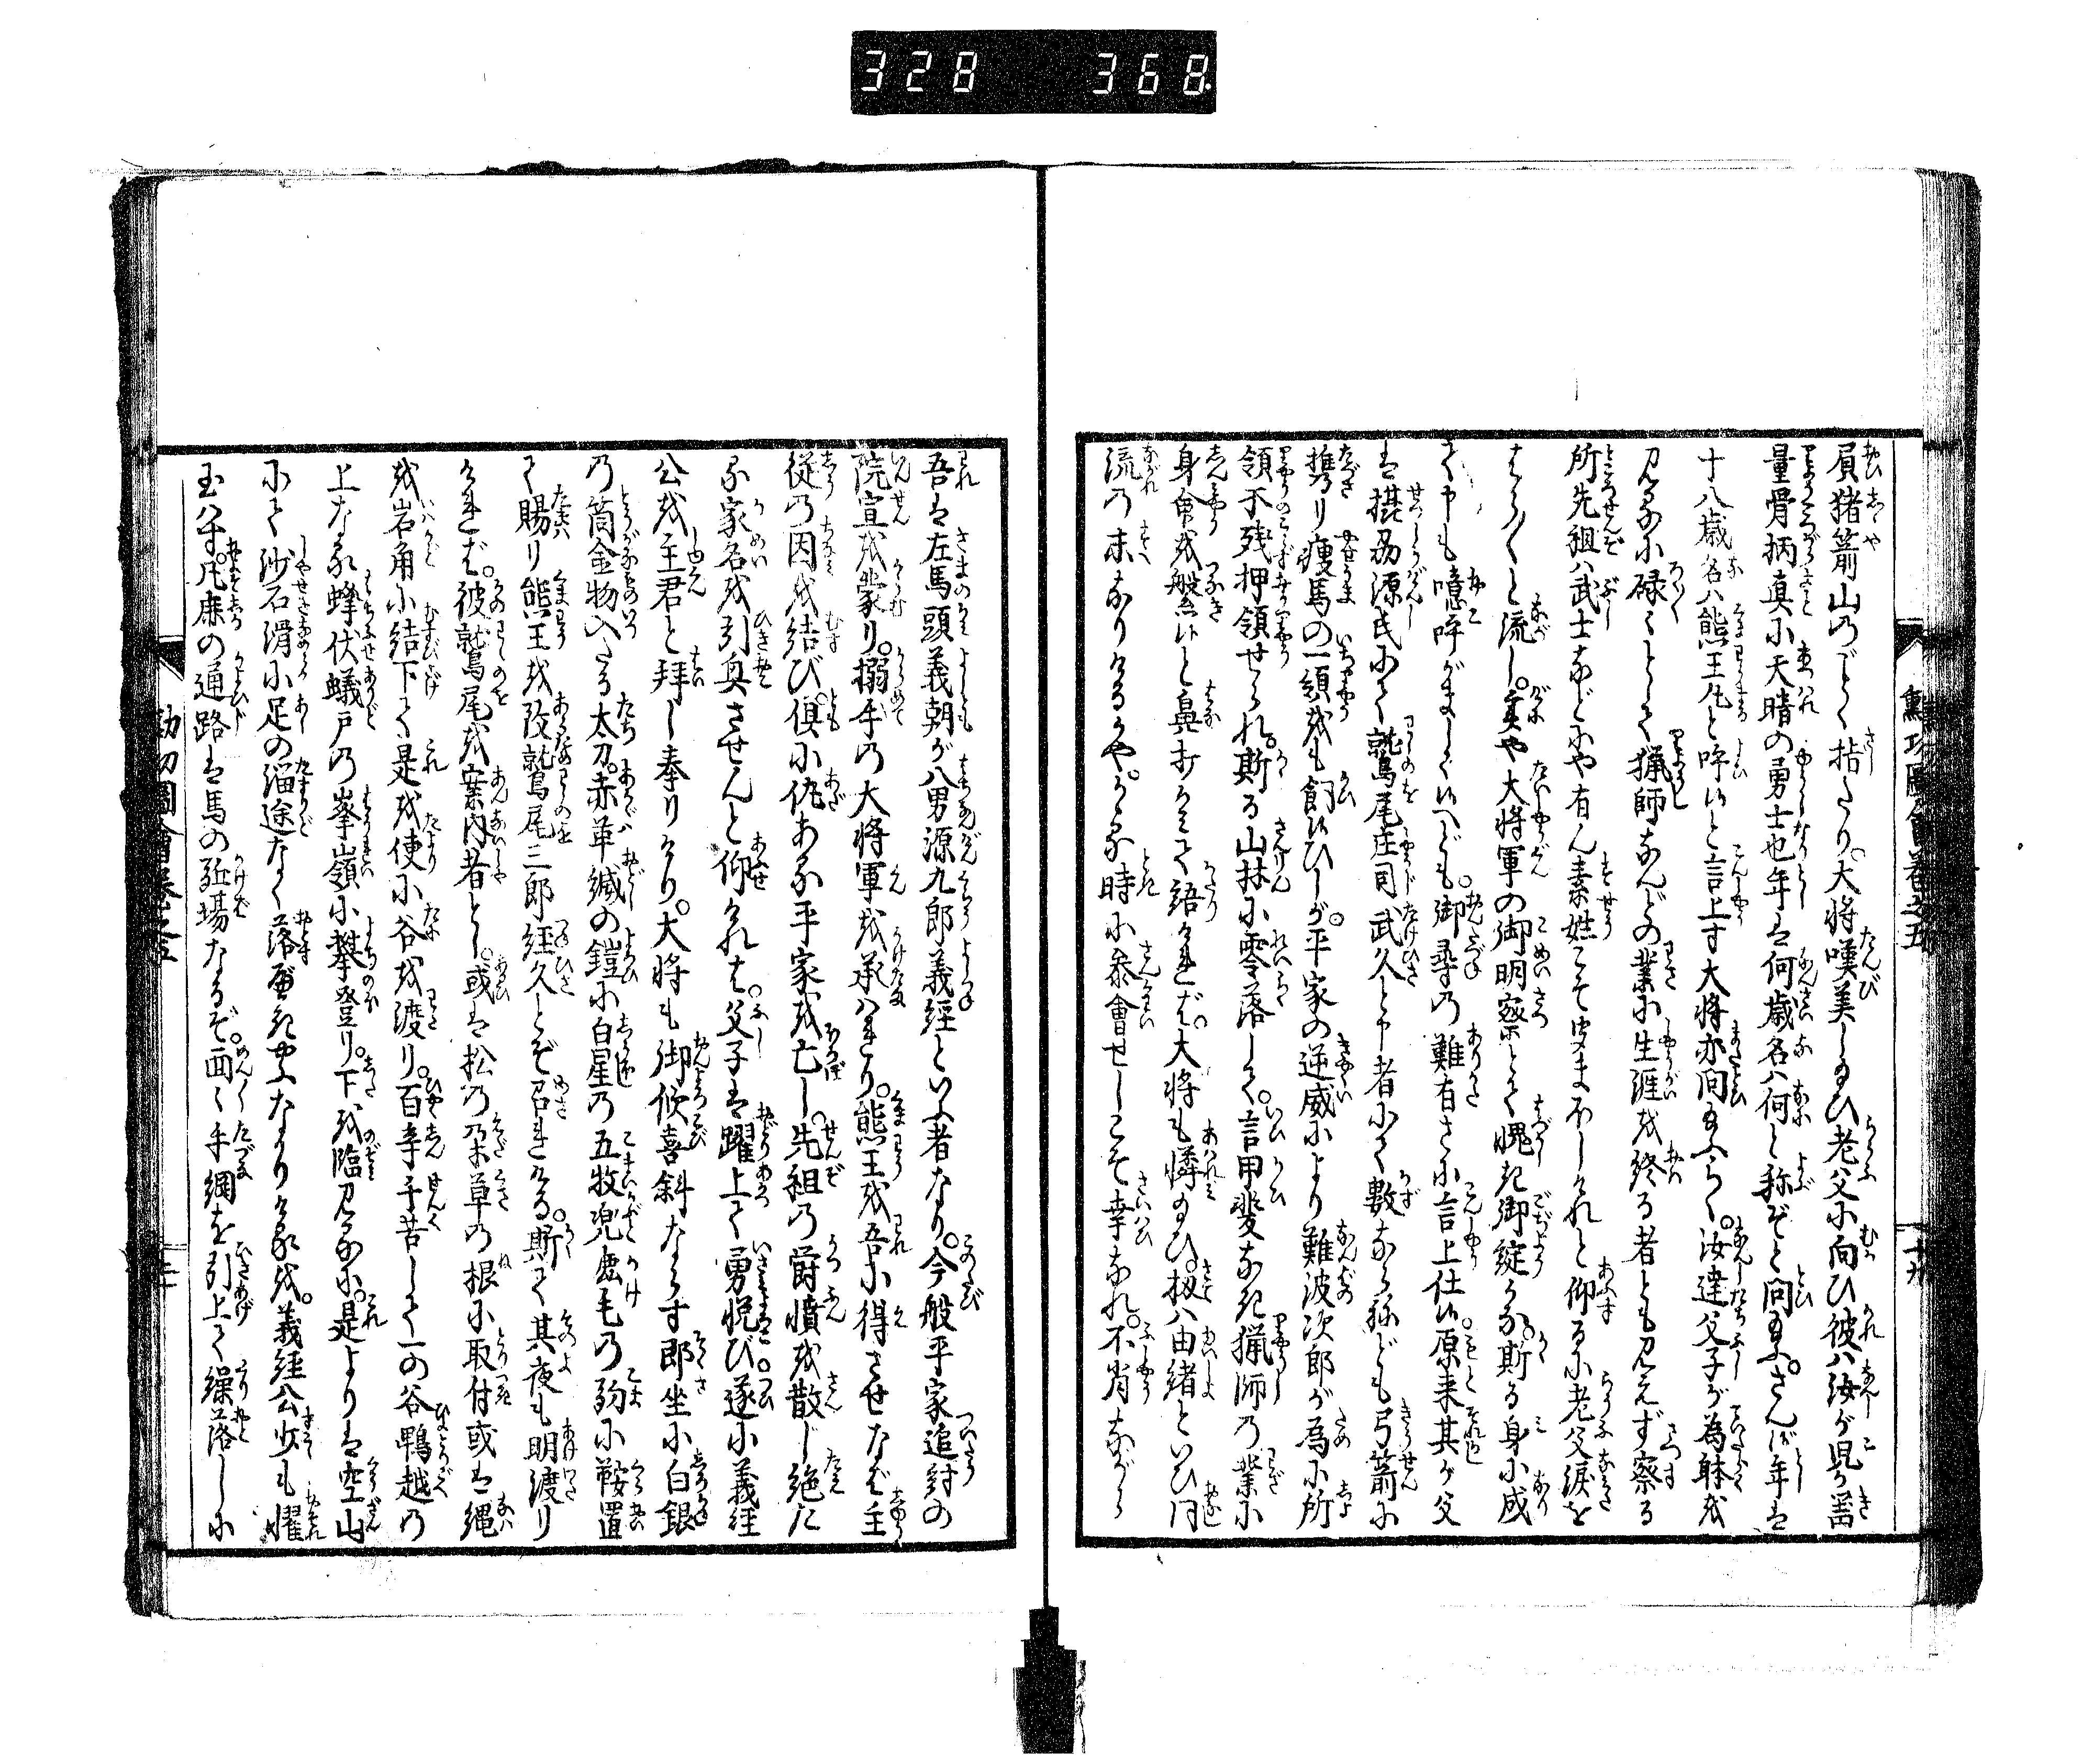 328 368
員猪箭山のごとく括たり。大将嘆美し給ひ老父に向ひ彼ハ汝が児か器
量骨柄真に天晴の勇士也年は何歳名ハ何と称ぞと問給ふ。さん候年は
十八歳名ハ熊王丸と呼候と言上す大将亦問給ふらく。汝達父子が為体を
見るに碌々として猟師なんどの業に生涯を終る者とも見えず察る
所先祖ハ武士などにや有ん素姓こそ聞まほしけれと仰るに老父涙を
はら〳〵と流し。実や大将軍の御明察とて愧き御綻かな斯る身に成
て申も噫呼がましく候へども。御尋の難有さに言上仕候。原来某が父
は摂州源氏にて鷲尾庄司武久と申者にて数ならねども弓箭に
携り痩馬の一頭をも飼候ひしが。平家の逆威により難波次郎が為に所
領不残押領せられ。斯る山林に零落して。言甲斐なき猟師の業に
身命を繋候と鼻打かみて語ければ。大将も憐給ひ扨ハ由緒といひ同
流の末なりけるかや。かゝる時に参會せしこそ幸なれ。不肖ながら
吾は左馬頭義朝が八男源九郎義経といふ者なり。今般平家追討の
院宣を蒙り。搦手の大将軍を承ハれり。熊王を吾に得させなば主
従の因を結び。倶に仇ある平家を亡し。先祖の爵憤を散じ絶た
る家名を引興させんと仰けれは。父子は躍上て勇悦び。遂に義経
公を主君と拝し奉りけり。大将も御欣喜斜ならす即坐に白銀
の筒金物入たる太刀。赤革縅の鎧に白星の五枚兜鹿毛の駒に鞍置
て賜り熊王を改鷲尾三郎経久とぞ召れける。斯て其夜も明渡り
ければ。彼鷲尾を案内者とし。或は松の朶草の根に取付或は縄
を岩角に結下て是を便に谷を渡り。百辛千苦して一の谷鴨越の
上なる蜂伏蟻戸の峯嶺に攀登り。下を臨見るに。是よりは空山
にて沙石滑に足の溜途なく落留べき要ふなりけるを。義経公少も懼
玉ハす。凡麻の通路は馬の駈場なるぞ。面々手綱を引上て繰落しに